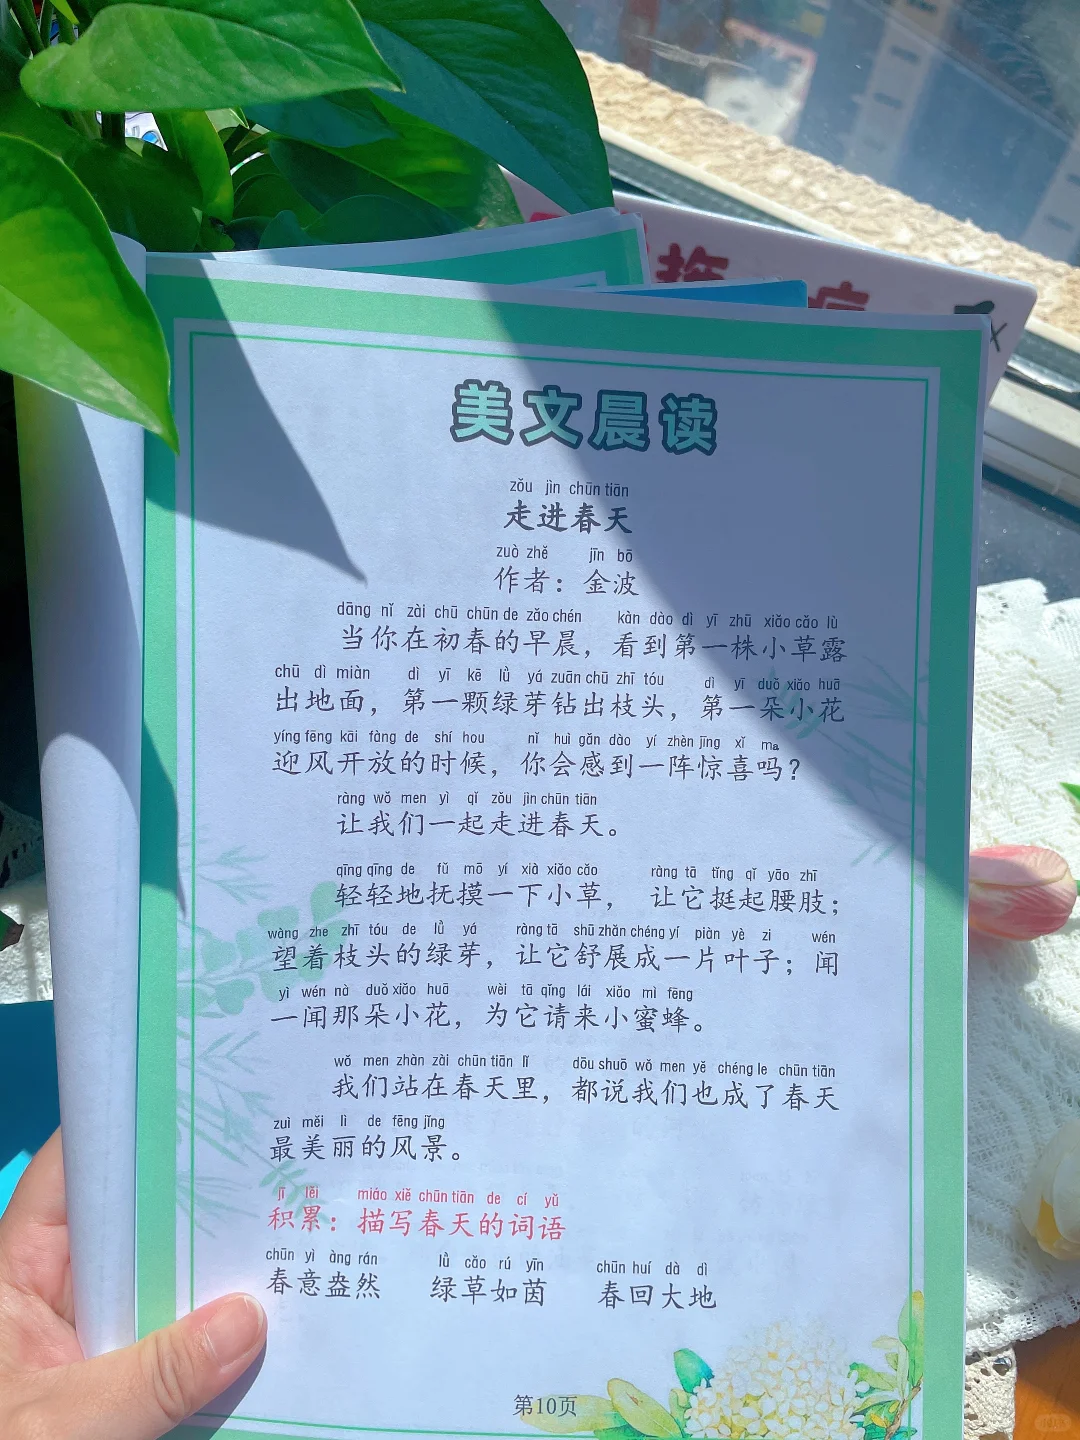 美文晨读
zǒu jìn chūn tiān
走进春天
zuò zhě jīn bō
作者：金波
dāng nǐ zài chū chūn de zǎo chén kàn dào dì yī zhū xiǎo cǎo lù
当你在初春的早晨，看到第一株小草露
chū dì miàn dì yī kē lǜ yá zuān chū zhī tóu dì yī duǒ xiǎo huā
出地面，第一颗绿芽钻出枝头，第一朵小花
yíng fēng kāi fàng de shí hou nǐ huì gǎn dào yí zhèn jīng xǐ ma
迎风开放的时候，你会感到一阵惊喜吗？
ràng wǒ men yì qǐ zǒu jìn chūn tiān
让我们一起走进春天。
qīng qīng de fǔ mō yí xià xiǎo cǎo ràng tā tǐng qǐ yāo zhī
轻轻地抚摸一下小草，让它挺起腰肢；
wàng zhe zhī tóu de lǜ yá ràng tā shū zhǎn chéng yí piàn yè zi wén
望着枝头的绿芽，让它舒展成一片叶子；闻
yì wén nà duǒ xiǎo huā wèi tā qǐng lái xiǎo mì fēng
一闻那朵小花，为它请来小蜜蜂。
wǒ men zhàn zài chūn tiān lǐ dōu shuō wǒ men yě chéng le chūn tiān
我们站在春天里，都说我们也成了春天
zuì měi lì de fēng jǐng
最美丽的风景。
jī lěi miáo xiě chūn tiān de cí yǔ
积累：描写春天的词语
chūn yì àng rán lǜ cǎo rú yīn chūn huí dà dì
春意盎然 绿草如茵 春回大地
第10页